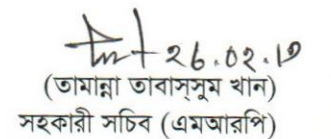 26.02.19
(তামান্না তাবাস্সুম খান)
সহকারী সচিব (এমআরপি)